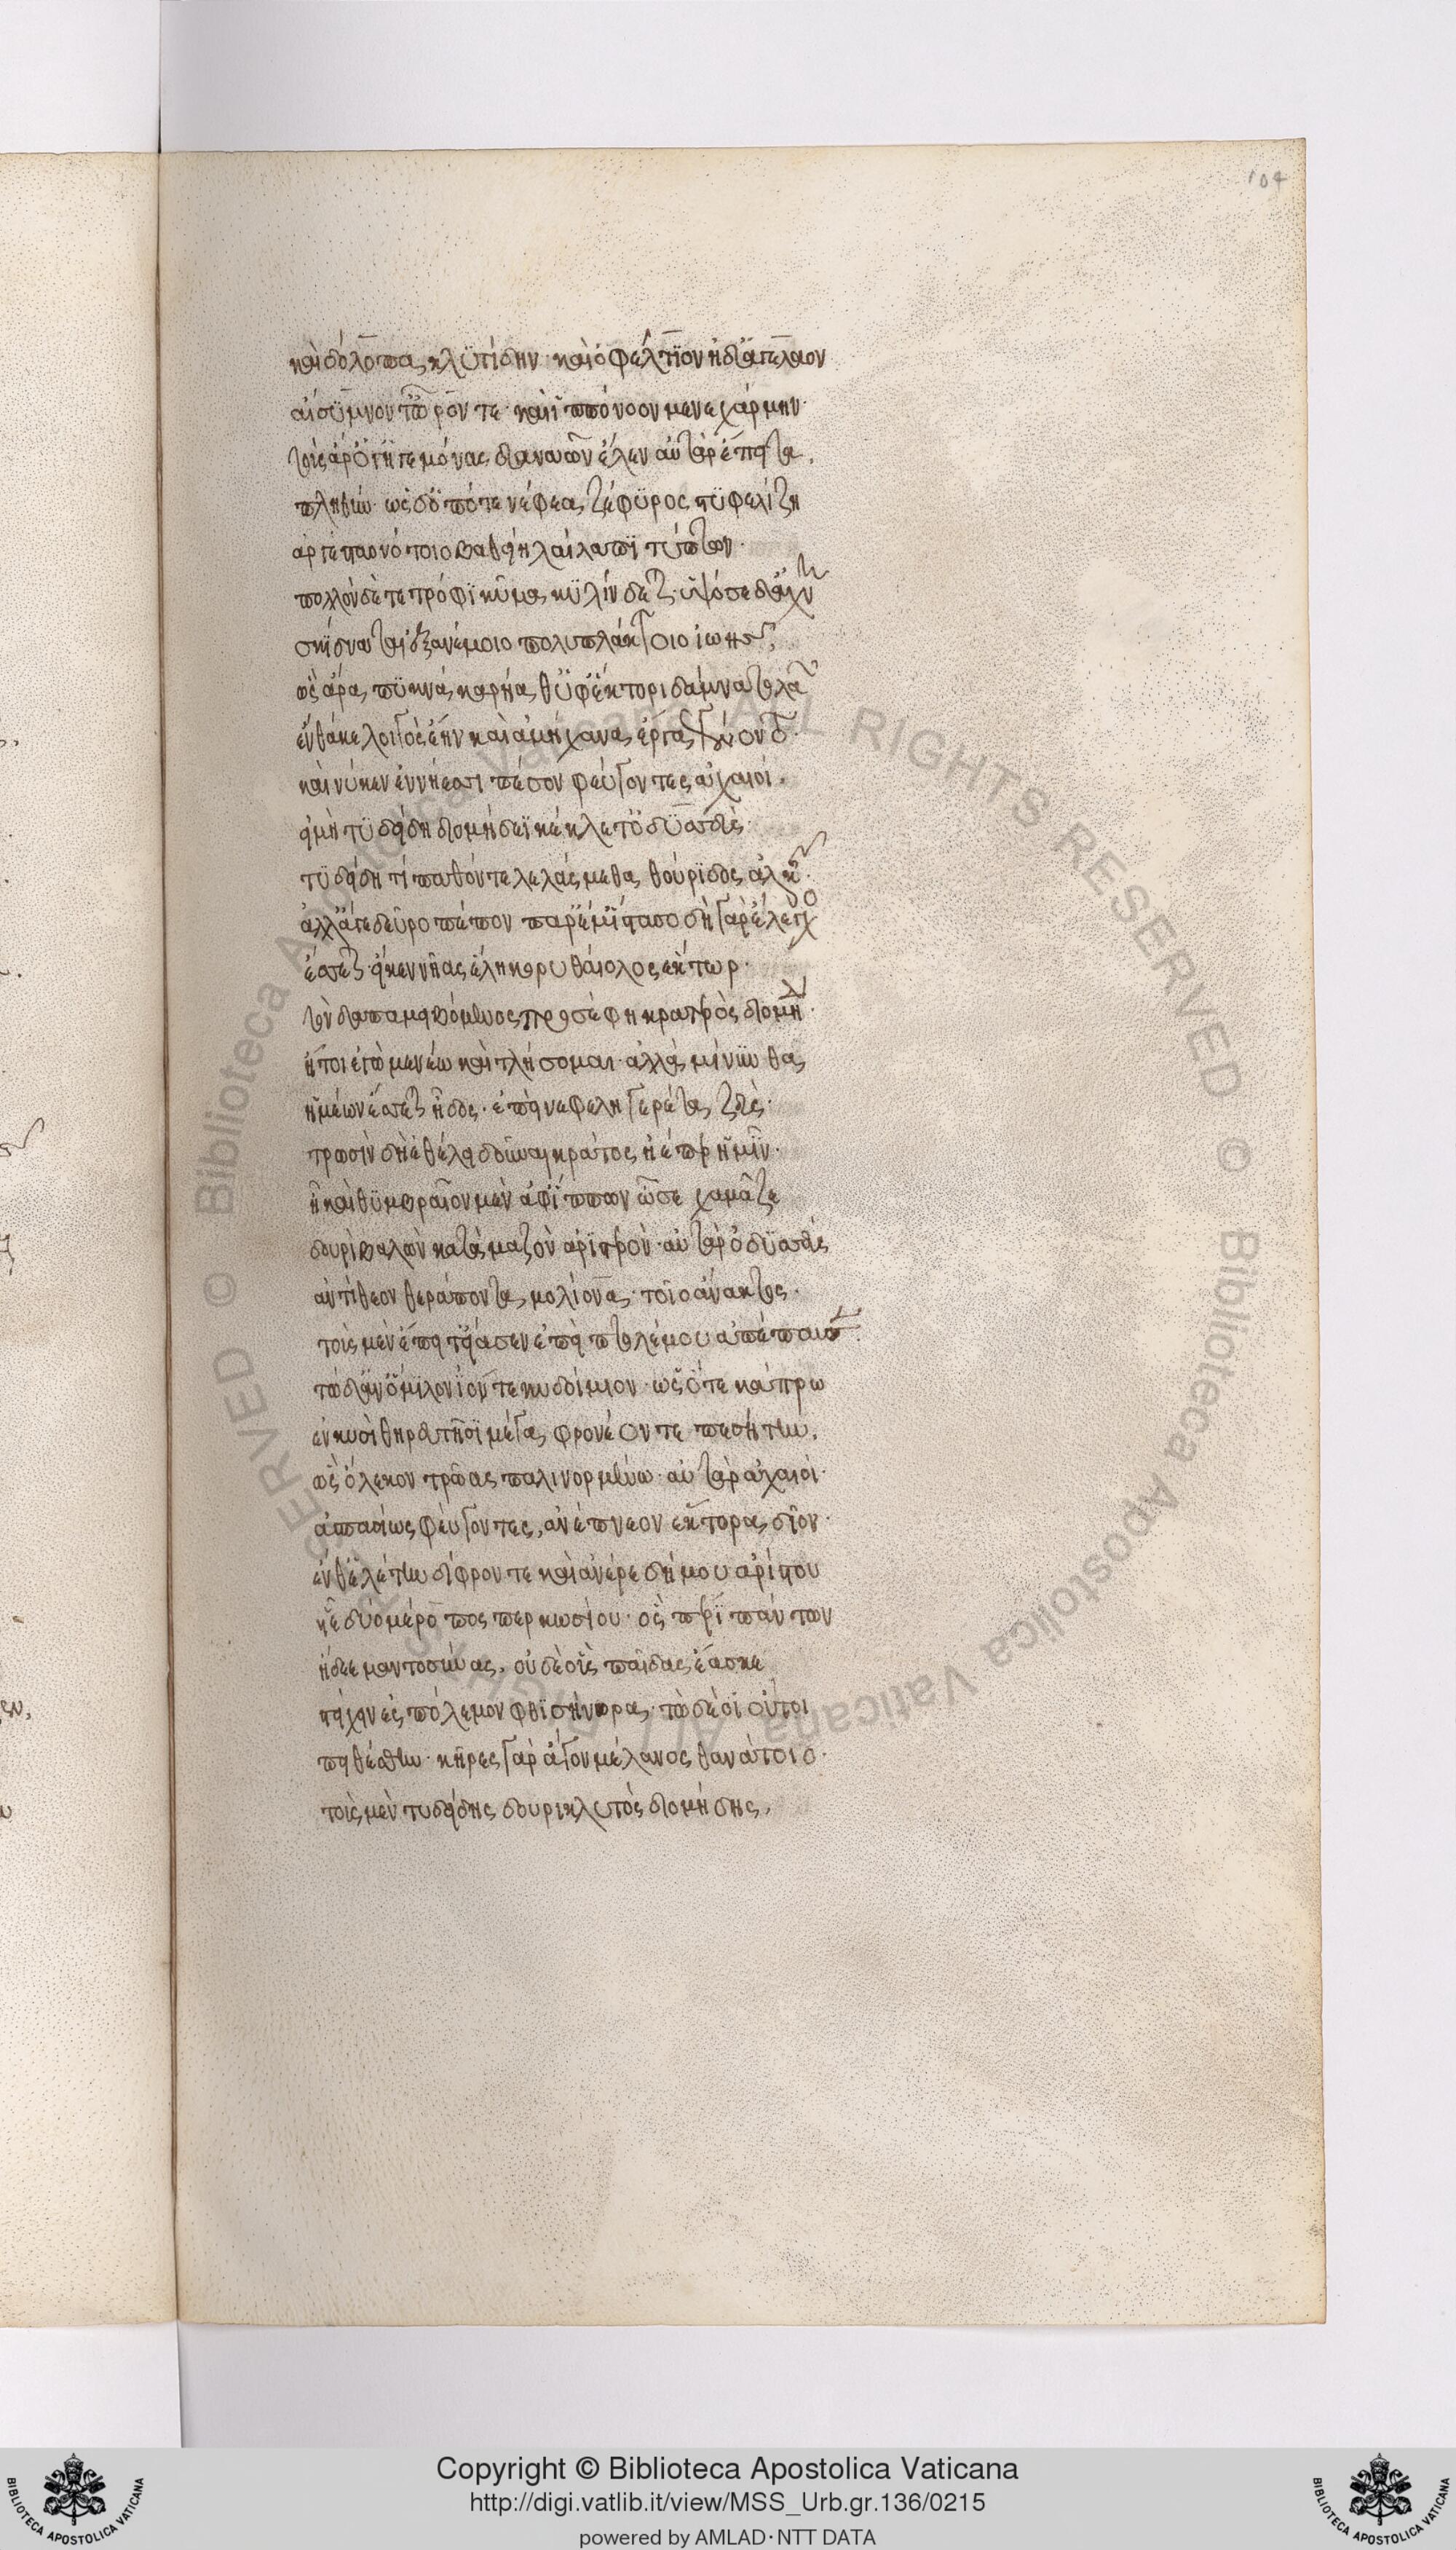 104
καὶ δόλοπα κλϋτίδην· καὶ ὀφέλτϊον ἠδ' ἀγέλαον
αἴσϋμνον τ' ὦρόν τε· καὶ ἱππόνοον μενεχάρμην·
τοὺς ἄρ' ὅγ' ἡγεμόνας δαναῶν ἕλεν αὐτὰρ ἔπειτα,
πληθύν· ὡς ὁπότε νέφεα ζέφϋρος στϋφελίζη
ἀργεσταο νότοιο βαθείη λαίλαπϊ τύπτων·
πολλὸν δέ τε τρόφϊ κῦμα κϋλίνδεται· ὑψόσε δ' ἄχνη
σκίδναται ἐξ ἀνέμοιο πολυπλάκτοιο ἰωῆς,
ὣς ἄρα πϋκνὰ καρήαθ' ὑφ' ἕκτορι δάμνατο λαῶν
ἔνθά κε λοιγὸς ἔην καὶ ἀμήχανα ἔργα γένοντο·
καί νύ κεν ἐν νήεσσι πέσον φεύγοντες ἀχαιοί,
εἰ μὴ τϋδείδη διομήδεϊ κέκλετ' ὀδϋσσεὺς·
τϋδείδη τί παθόντε λελάσμεθα θούρϊδος ἀλκῆς·
ἀλλ' ἄγε δεῦρο πέπον παρ' ἔμ' ἵστασο δὴ γὰρ ἔλεγχος
ἔσσεται· εἴ κεν νῆας ἕλη κορυθαίολος ἕκτωρ·
τὸν δ' ἀπαμειβόμενος προσέφη κρατερὸς διομήδης·
ἤτοι ἐγὼ μενέω καὶ τλήσομαι· ἀλλὰ μίνυνθα
ἡμέων ἔσσεται ἦδος· ἐπεὶ νεφεληγερέτα ζεὺς·
τρωσὶν δὴ ἐθέλει δοῦναι κράτος ἠέπερ ἡμῖν·
ἦ καὶ θϋμβραῖον μὲν ἀφ' ἵππων ὦσε χαμᾶζε
δουρὶ βαλὼν κατὰ μαζὸν ἀρϊστερὸν· αὐτὰρ ὀδϋσσεὺς
ἀντίθεον θεράποντα μολίονα· τοῖο ἄνακτος·
τοὺς μὲν ἔπειτ' εἴασεν ἐπεὶ πτολέμου ἀπέπαυσαν·
τὼ δ' ἀν' ὅμϊλον ἰόντε κυδοίμιον· ὡς ὅτε κάπρω
ἐν κυσὶ θηρευτῆσϊ μέγα φρονέοντε πεσήτην,
ὣς ὄλεκον τρῶας πάλιν ὀρμένω· αὐτὰρ ἀχαιοὶ·
ἀσπασίως φεύγοντες, ἀνέπνεον ἕκτορα δῖον·
ἔνθ' ἑλέτην δίφρον τε καὶ ἀνέρε δήμου ἀρίστου
υἷε δύο μέροπος περκωσίου· ὃς περὶ πάντων
ἤδεε μαντοσύνας, οὐδὲ οἷς παῖδας ἔασκε
στείχειν ἐς πόλεμον φθισήνορα· τὼ δέ οἱ οὔτοι
πειθέσθην· κῆρες γὰρ ἄγον μέλανος θανάτοιο·
τοὺς μὲν τυδείδης δουρικλυτὸς διομήδης,
Copyright © Biblioteca Apostolica Vaticana
http://digi.vatlib.it/view/MSS_Urb.gr.136/0215
powered by AMLAD·NTT DATA